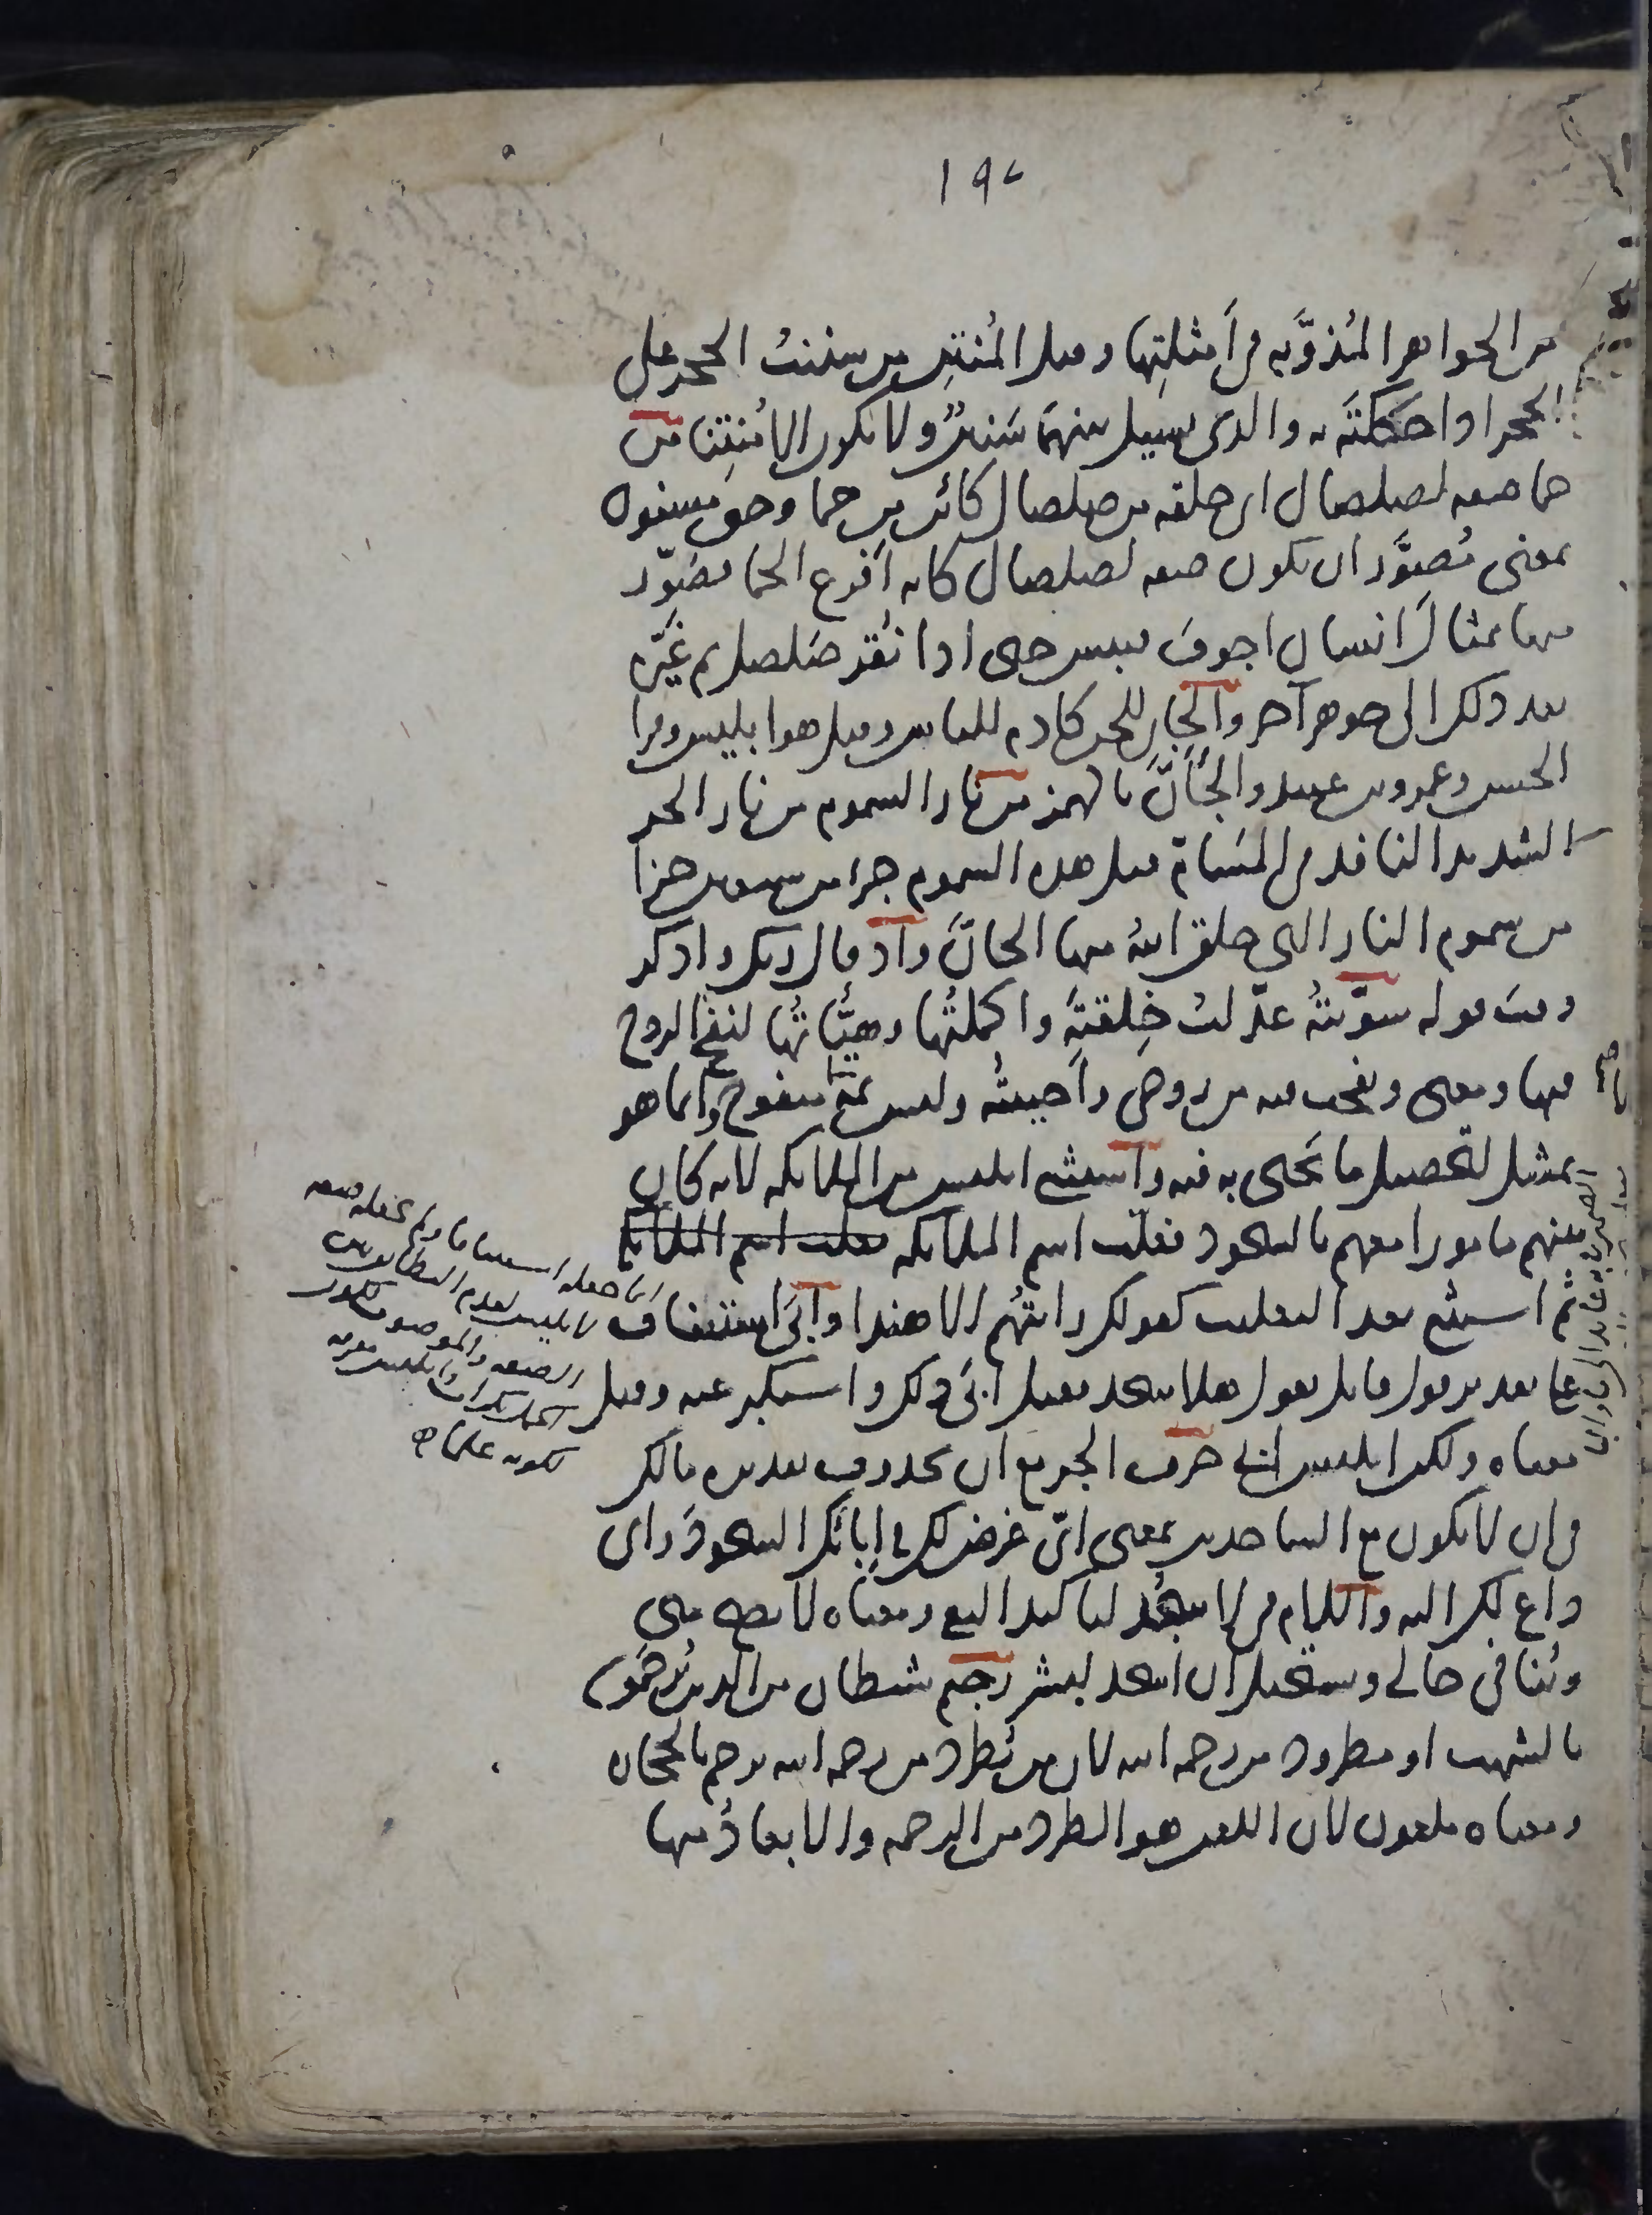 ١٩٧
من الجواهر المُذوَّبه في أمثلتِها وقيل المُنتِن من سننتُ الحجر على
الحجر اذا حكَكتَه به والذي يسيل بينهما سَنينٌ ولا يكون الا مُنتِنا من
حما صفه لصلصال اى خلقه من صلصال كائن من حما وحق مسنون
بمعنى مُصوَّر ان يكون صفه لصلصال كانه أفرغ الحما فصَوّر
منها تمثالَ انسان اجوفَ فيبس حتى اذا نُقر صَلصل ثم غيَّره
بعد ذلك الى جوهر آخر والجان للجن كآدم للناس وقيل هو ابليس وقرا
الحسن وعمرو بن عبيد والجأنّ بالهمز من نار السموم من نار الحر
الشديد النافذ في المَسَامّ قيل هذه السموم جزء من سبعين جزا
من سموم النار التي خلق الله منها الجانَّ واذ قال ربك واذكر
وقتَ قوله سوَّيتُه عدّلتُ خِلقتَه واكملتُها وهيّأتُها لنفخ الروح
فيها ومعنى ونفخت فيه من روحي وأحييتُه وليس ثمّ نفخ ولا منفوخ وانما هو
تمثيل لتحصيل ما يَحيى به فيه واستثنى ابليس من الملائكه لانه كان
بينهم مامورا معهم بالسجود فغلّب اسم الملائكه فغلب اسم الملائكه
ثم استثنى بعد التغليب كقولك رايتهُم الا هندا وأبَى استئناف
على تقدير قول قائل يقول هلا سجد فقيل أبَى ذلك واستكبر عنه وقيل
معناه ولكن ابليس ابى حرف الجر مع ان محذوف تقديره مالك
في ان لا تكون مع الساجدين بمعنى اىّ غرض لك في إبائك السجودَ واى
داع لك اليه واللام في لا سجُد لتاكيد النفي ومعناه لا يصح منى
ويُنافى حالى ويستحيل ان اسجد لبشر رجيم شيطان من الذين يُرجَمون
بالشهب او مطرود من رحمه الله لان من يُطرد من رحمه الله يرجم بالحجاره
ومعناه ملعون لان اللعن هو الطرد من الرحمه والابعادُ منها
انما جعله استئنافا ولم يجعله صفه
لابليس لعدم التطابق بين
الصفه والموصوف لكون
الجمل نكرات وابليس معرفه
لكونه علما